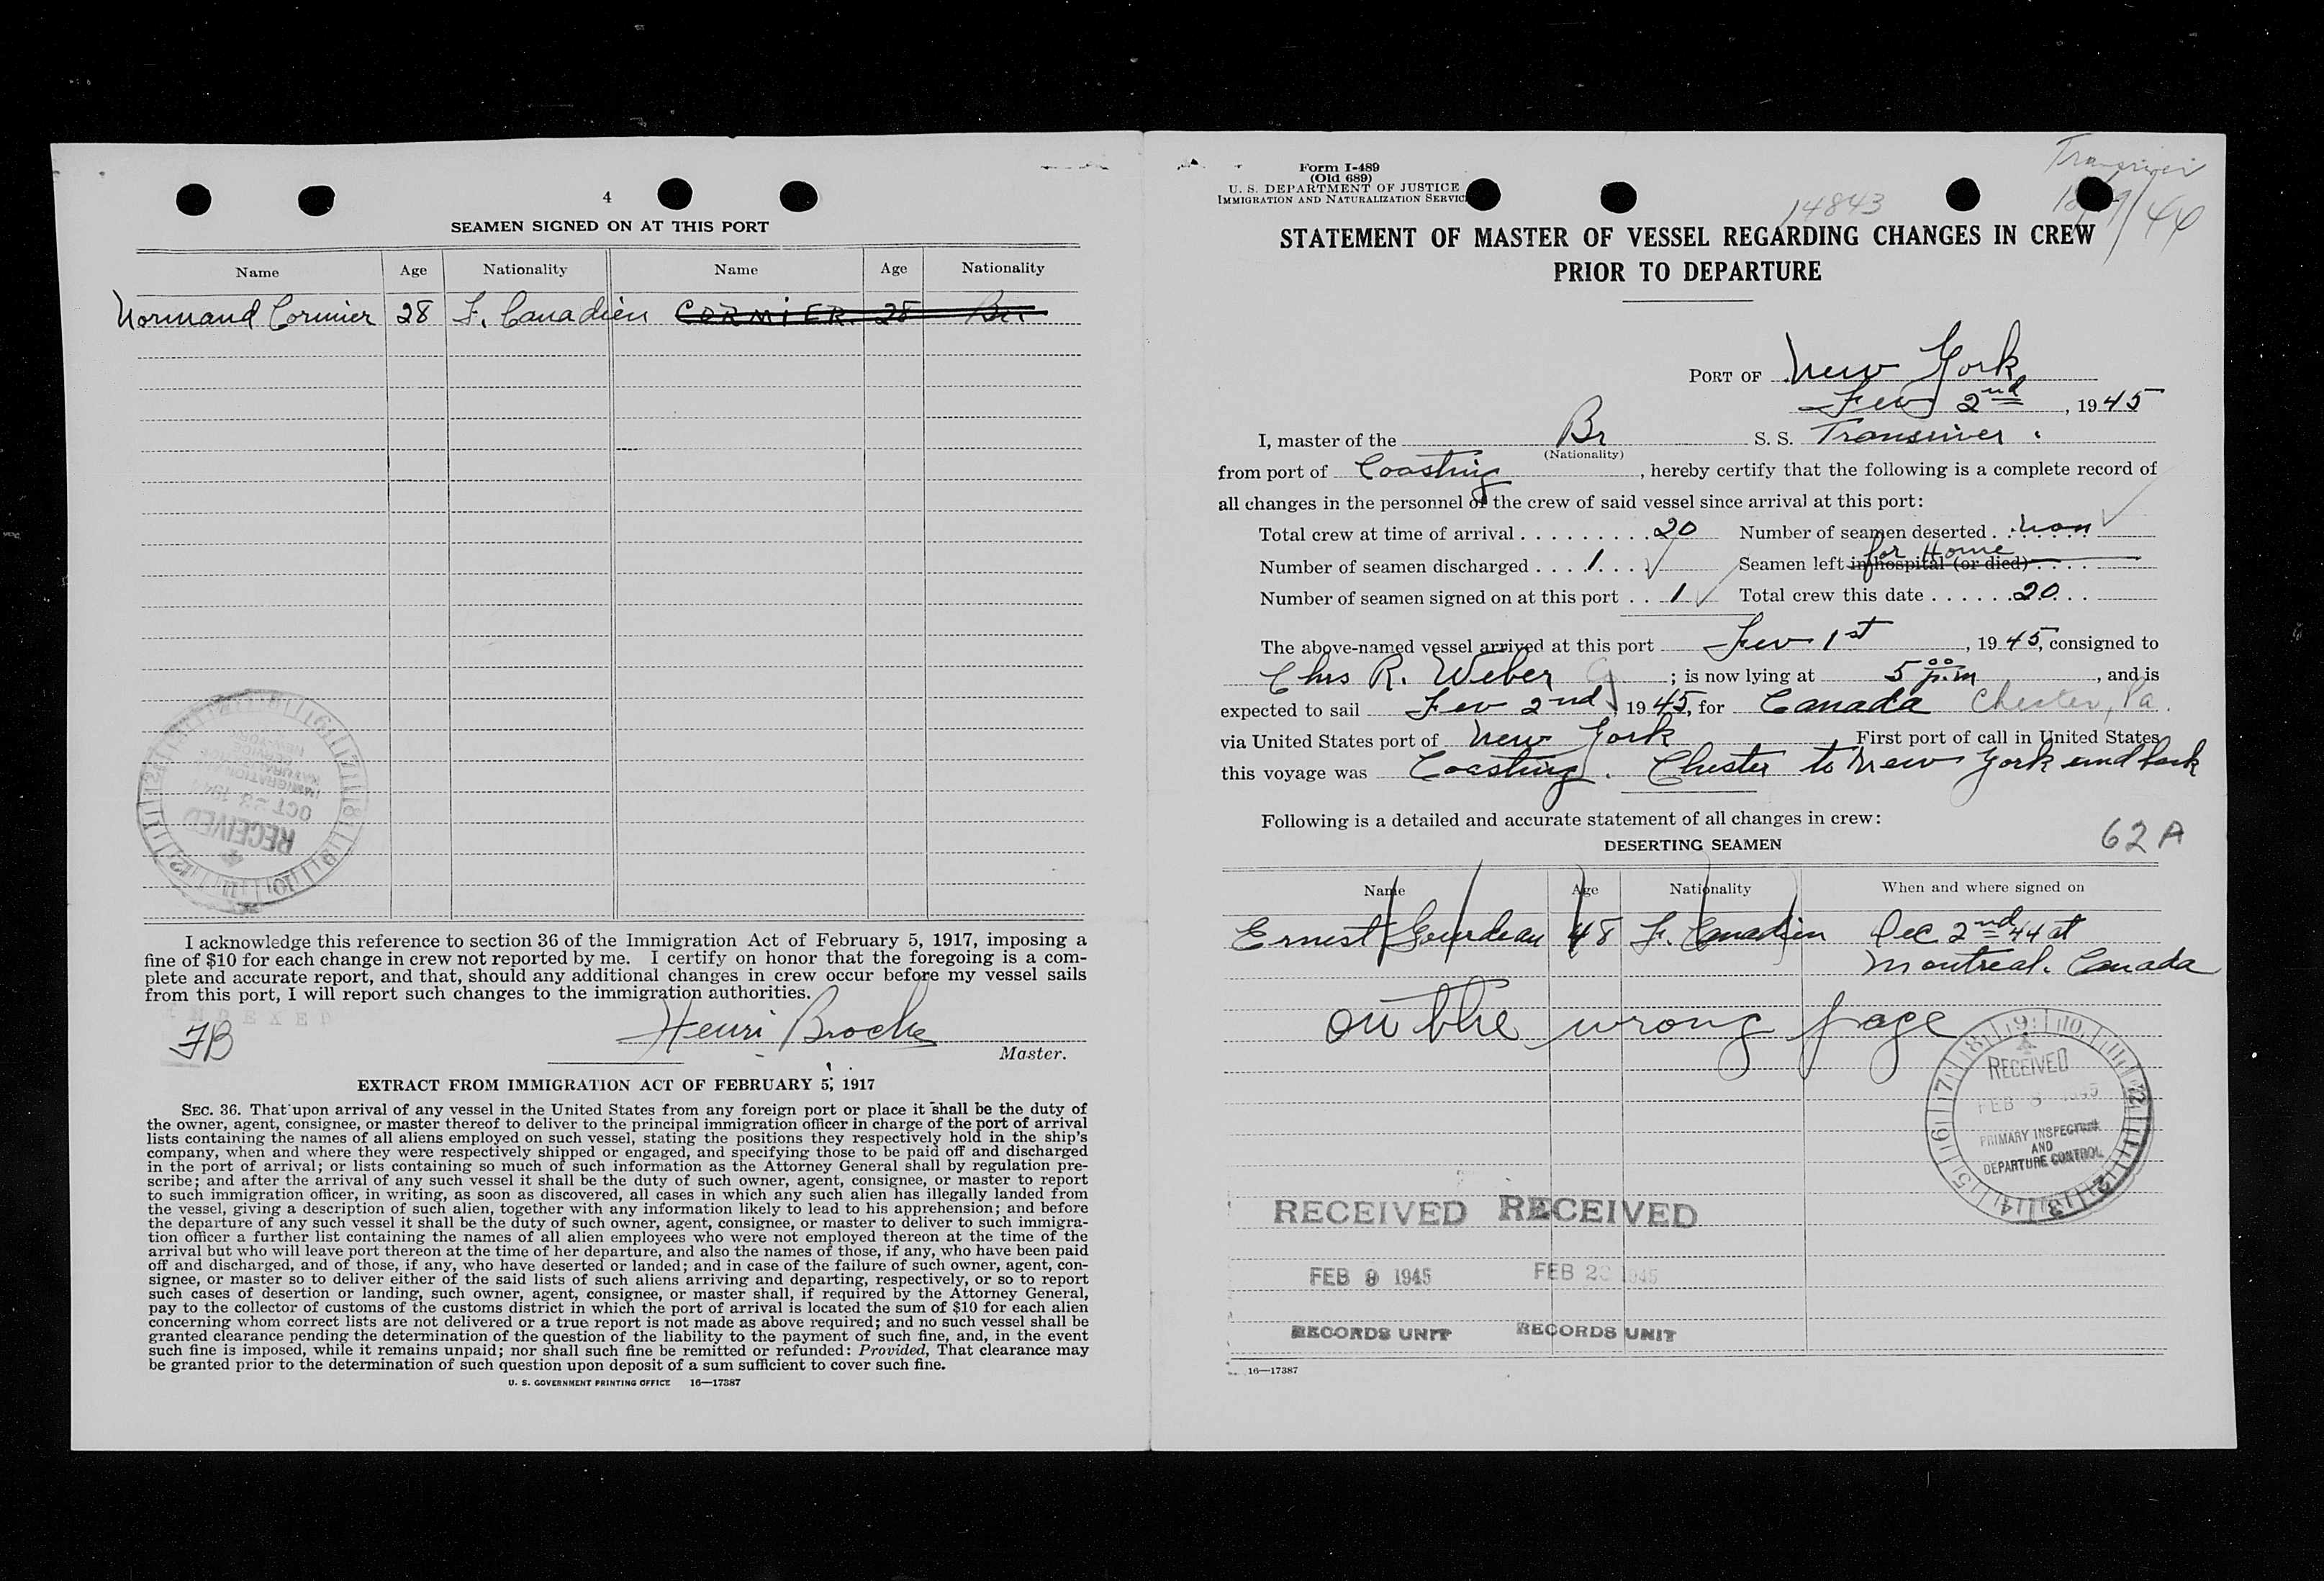 4
SEAMEN SIGNED ON AT THIS PORT
Name Age Nationality Name Age Nationality
Normand Cormier 28 F. Canadien CORMIER. 28 Br.
RECEIVED
OCT 23 194
IMMIGRATION
I acknowledge this reference to section 36 of the Immigration Act of February 5, 1917, imposing a
fine of $10 for each change in crew not reported by me. I certify on honor that the foregoing is a com-
plete and accurate report, and that, should any additional changes in crew occur before my vessel sails
from this port, I will report such changes to the immigration authorities.
INDEXED
FB
Henri Broche
Master.
EXTRACT FROM IMMIGRATION ACT OF FEBRUARY 5, 1917
SEC. 36. That upon arrival of any vessel in the United States from any foreign port or place it shall be the duty of
the owner, agent, consignee, or master thereof to deliver to the principal immigration officer in charge of the port of arrival
lists containing the names of all aliens employed on such vessel, stating the positions they respectively hold in the ship's
company, when and where they were respectively shipped or engaged, and specifying those to be paid off and discharged
in the port of arrival; or lists containing so much of such information as the Attorney General shall by regulation pre-
scribe; and after the arrival of any such vessel it shall be the duty of such owner, agent, consignee, or master to report
to such immigration officer, in writing, as soon as discovered, all cases in which any such alien has illegally landed from
the vessel, giving a description of such alien, together with any information likely to lead to his apprehension; and before
the departure of any such vessel it shall be the duty of such owner, agent, consignee, or master to deliver to such immigra-
tion officer a further list containing the names of all alien employees who were not employed thereon at the time of the
arrival but who will leave port thereon at the time of her departure, and also the names of those, if any, who have been paid
off and discharged, and of those, if any, who have deserted or landed; and in case of the failure of such owner, agent, con-
signee, or master so to deliver either of the said lists of such aliens arriving and departing, respectively, or so to report
such cases of desertion or landing, such owner, agent, consignee, or master shall, if required by the Attorney General,
pay to the collector of customs of the customs district in which the port of arrival is located the sum of $10 for each alien
concerning whom correct lists are not delivered or a true report is not made as above required; and no such vessel shall be
granted clearance pending the determination of the question of the liability to the payment of such fine, and, in the event
such fine is imposed, while it remains unpaid; nor shall such fine be remitted or refunded: Provided, That clearance may
be granted prior to the determination of such question upon deposit of a sum sufficient to cover such fine.
U. S. GOVERNMENT PRINTING OFFICE 16—17387
Form I-489
(Old 689)
U. S. DEPARTMENT OF JUSTICE
IMMIGRATION AND NATURALIZATION SERVIC
Transriver
14843
STATEMENT OF MASTER OF VESSEL REGARDING CHANGES IN CREW
PRIOR TO DEPARTURE
PORT OF New York
Fev 2nd, 1945
I, master of the Br S. S. Transriver.
(Nationality)
from port of Coasting, hereby certify that the following is a complete record of
all changes in the personnel of the crew of said vessel since arrival at this port:
Total crew at time of arrival . . . . . . . . . 20 Number of seamen deserted . . non
Number of seamen discharged . . . . 1 . . . . Seamen left in hospital (or died) for Home
Number of seamen signed on at this port . . 1 Total crew this date . . . . . . 20 . .
The above-named vessel arrived at this port Fev 1st, 1945, consigned to
Chs R. Weber; is now lying at 5 00 p.m, and is
expected to sail Fev 2nd, 1945, for Canada Chester, Pa.
via United States port of New York First port of call in United States
this voyage was Coasting. Chester to New York and back
Following is a detailed and accurate statement of all changes in crew:
DESERTING SEAMEN
62 A
Name Age Nationality When and where signed on
Ernest Gourdeau 48 F. Canadien Dec 2nd 44 at
Montreal. Canada
on the wrong page
RECEIVED
FEB 3 1945
PRIMARY INSPECTION
AND
DEPARTURE CONTROL
RECEIVED RECEIVED
FEB 9 1945 FEB 20 1945
RECORDS UNIT RECORDS UNIT
16—17387